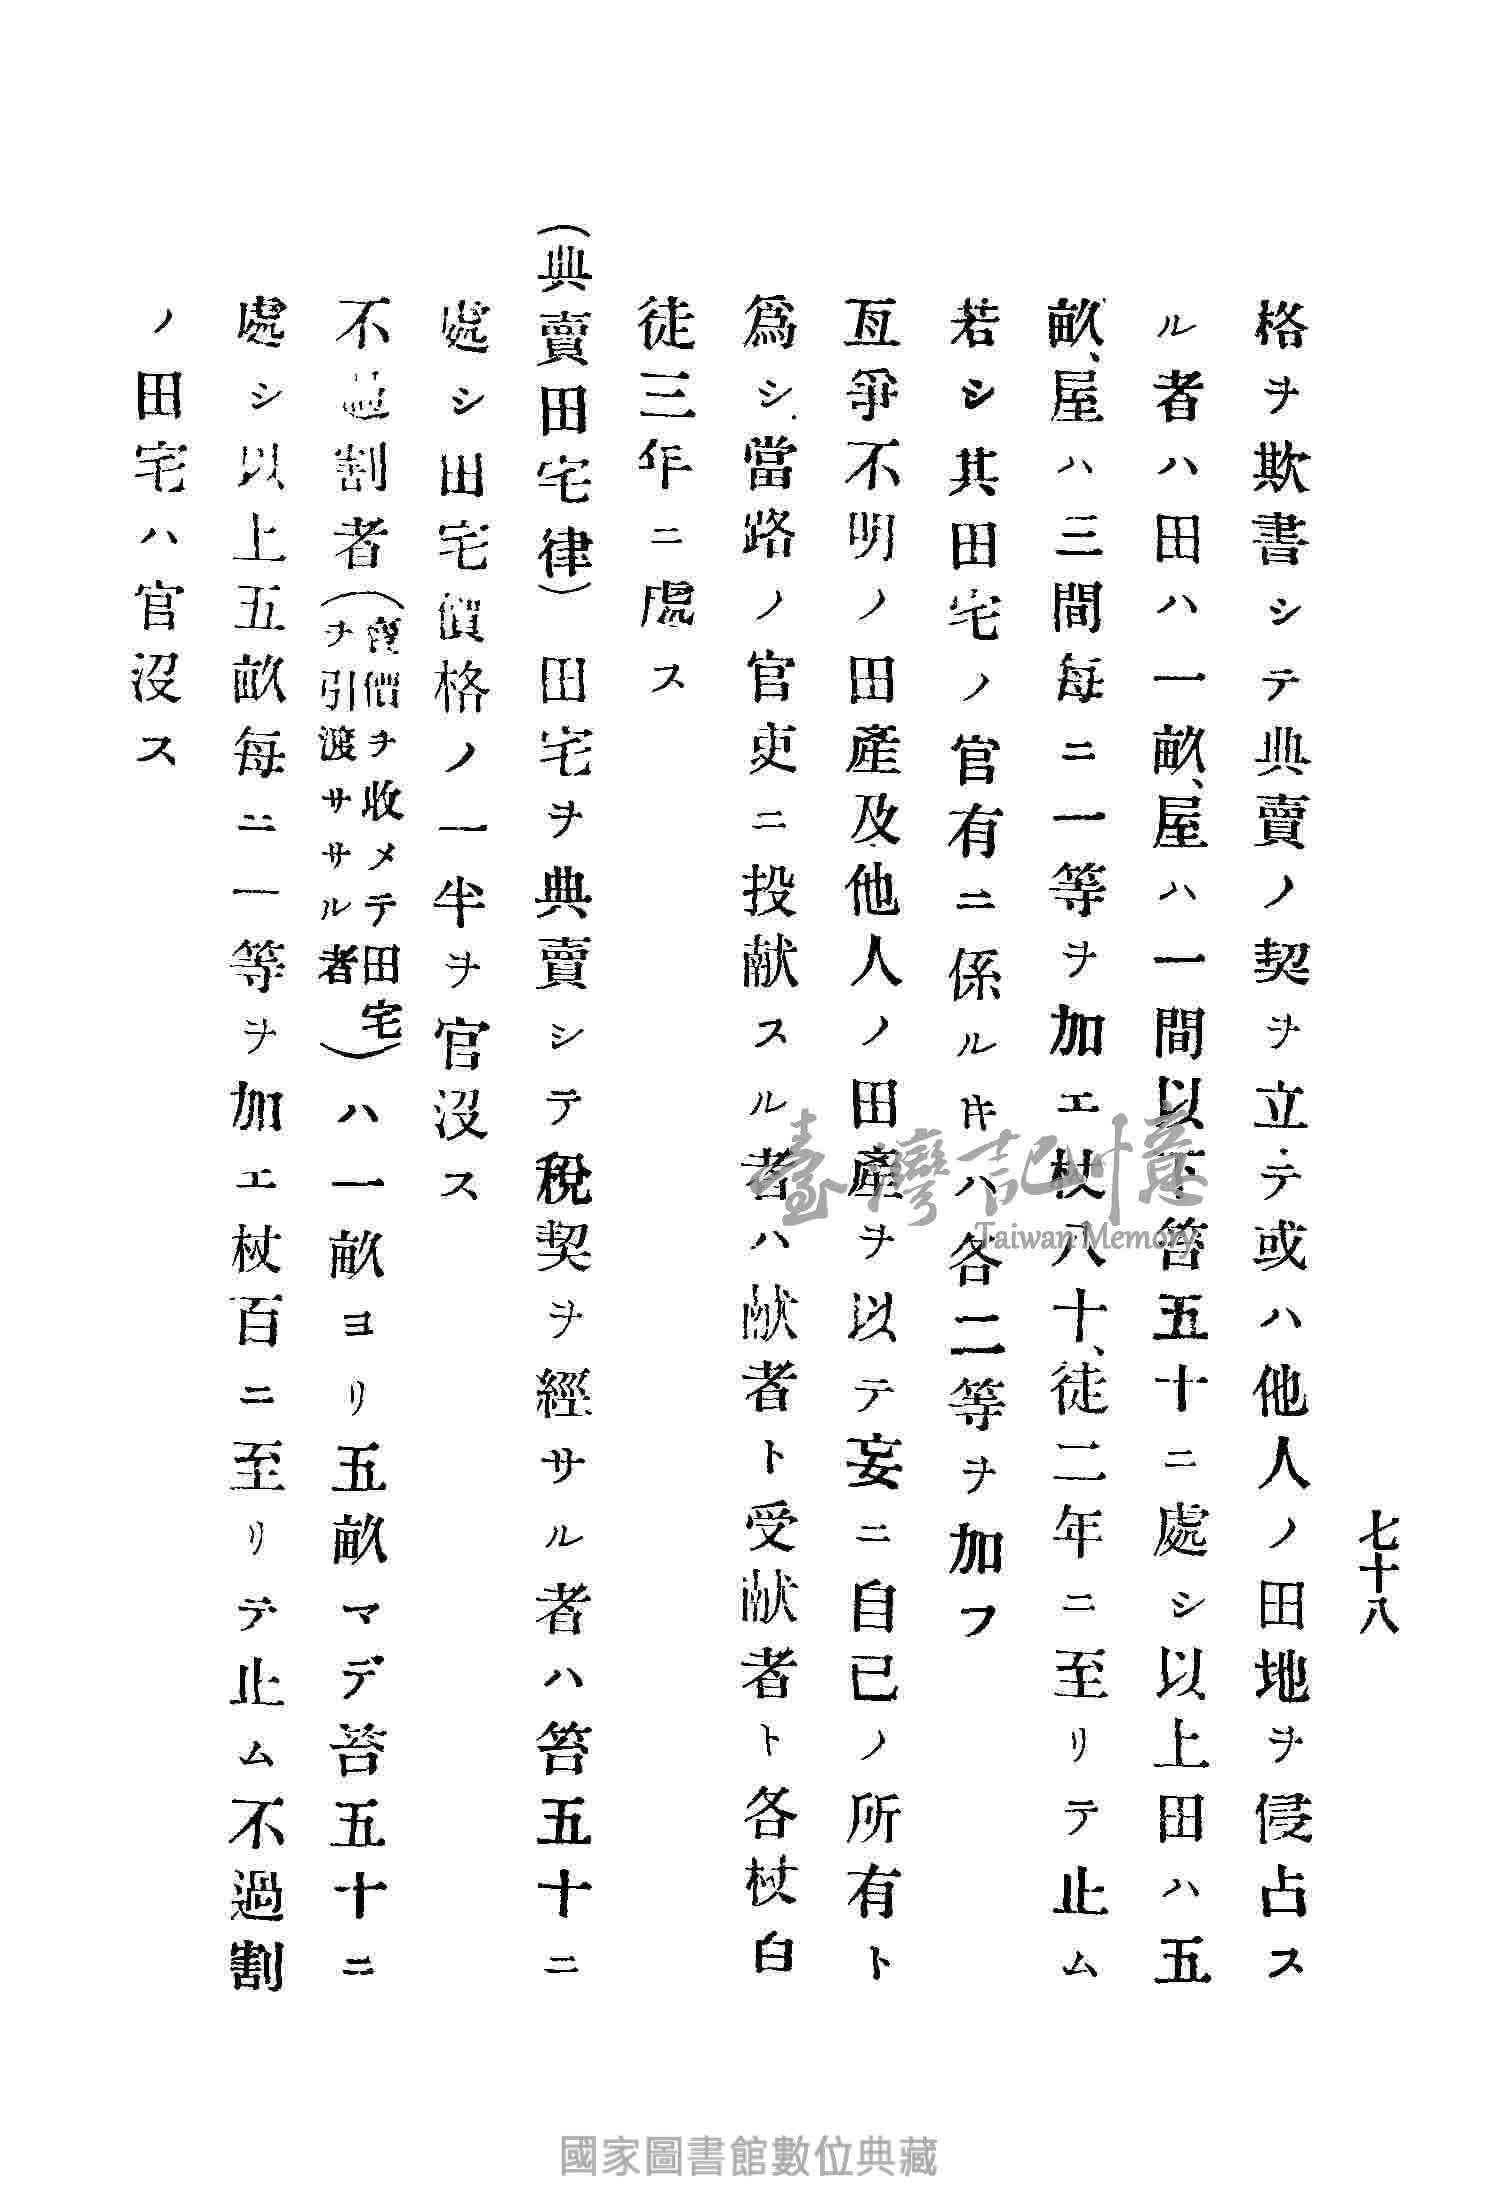 七十八
格ヲ欺書シテ典賣ノ契ヲ立テ或ハ他人ノ田地ヲ侵占ス
ル者ハ田ハ一畝、屋ハ一間以下笞五十ニ處シ以上田ハ五
畝、屋ハ三間每ニ一等ヲ加エ杖八十、徒二年ニ至リテ止ム
若シ其田宅ノ官有ニ係ルキハ各二等ヲ加フ
互爭不明ノ田產及他人ノ田產ヲ以テ妄ニ自己ノ所有ト
爲シ當路ノ官吏ニ投献スル者ハ献者ト受献者ト各杖百
徒三年ニ處ス
(典賣田宅律) 田宅ヲ典賣シテ稅契ヲ經サル者ハ笞五十ニ
處シ田宅價格ノ一半ヲ官沒ス
不過割者(賣價ヲ收メテ田宅ヲ引渡ササル者)ハ一畝ヨリ五畝マデ笞五十ニ
處シ以上五畝每ニ一等ヲ加エ杖百ニ至リテ止ム不過割
ノ田宅ハ官沒ス
臺灣記憶
Taiwan Memory
國家圖書館數位典藏